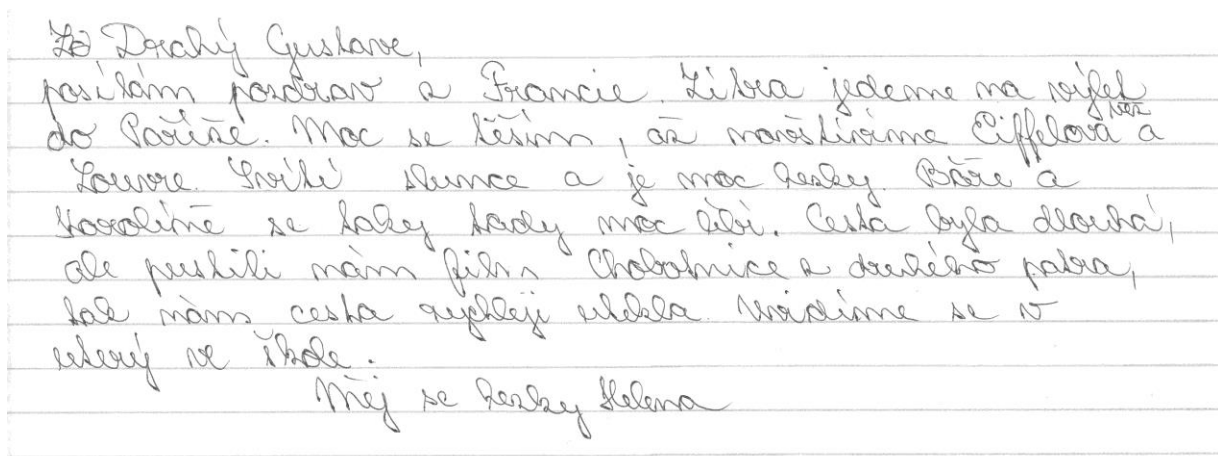 Drahý Gustave,
posílám pozdrav z Francie. Zítra jedeme na výlet
do Paříže. Moc se těším, až navštívíme Eiffelova věž a
Louvre. Svítí slunce a je moc hezky. Báře a
Karolíně se taky tady moc líbí. Cesta byla dlouhá,
ale pustili nám film Chobotnice z druhého patra,
tak nám cesta rychleji utekla. Uvidíme se v
uterý ve škole.
Měj se hezky Helena